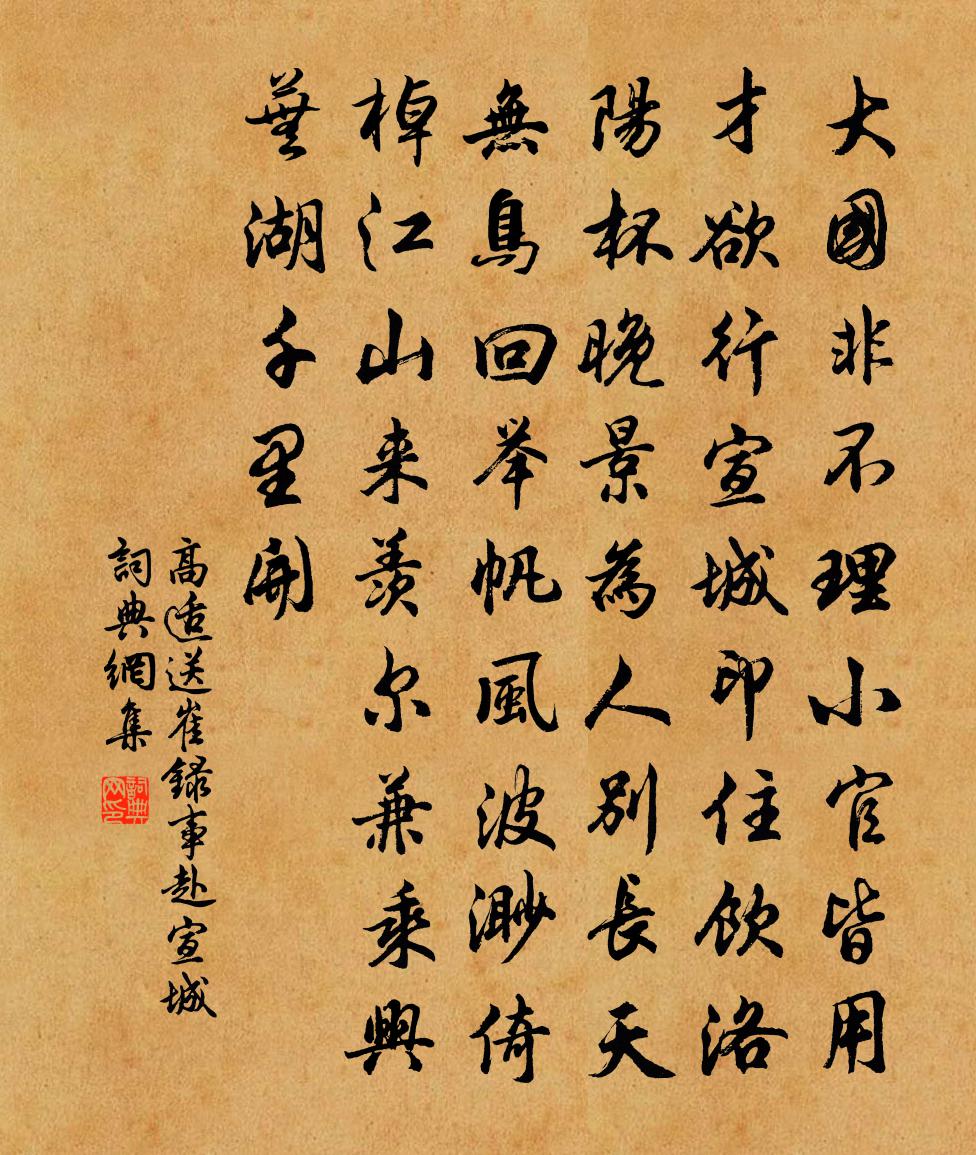 大國非不理小官皆用
才欲行宣城印住飲洛
陽杯晚景為人別長天
無鳥回举帆風波渺倚
棹江山来羨尔兼乘興
蕪湖千里開
高适送崔録事赴宣城
詞典網集
詞典
网印